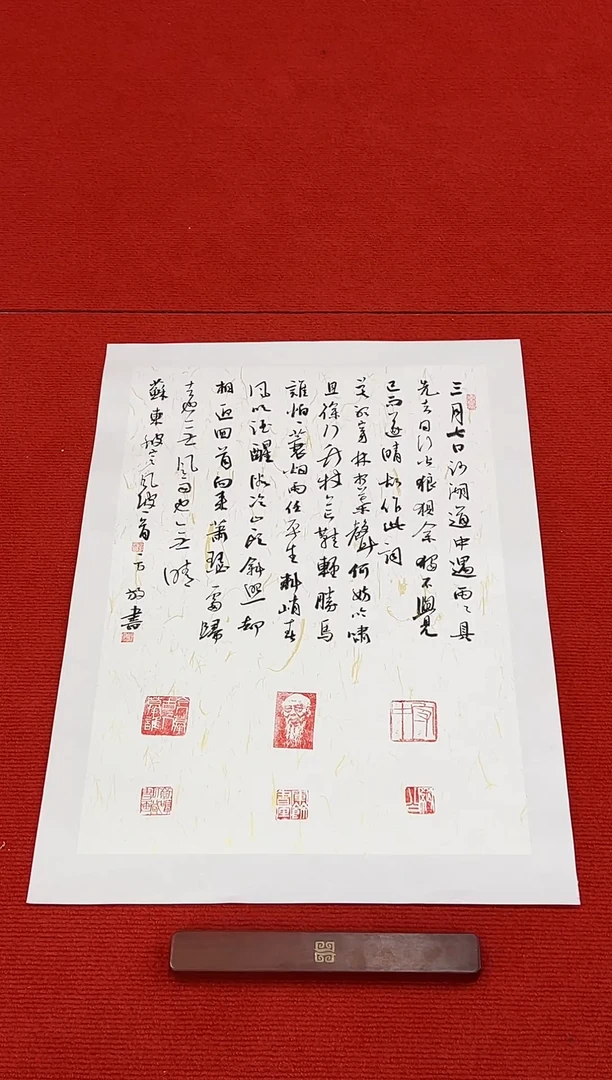 三月七日沙湖道中遇雨〻具
先去同行皆狼狽余獨不覺
已而遂晴故作此詞
莫聽穿林打葉聲何妨吟嘯
且徐行竹杖芒鞋輕勝馬
誰怕一蓑烟雨任平生料峭春
風吹酒醒微冷山頭斜照却
相迎回首向來蕭瑟處歸
去也無風雨也無晴
蘇東坡定風波一首
書